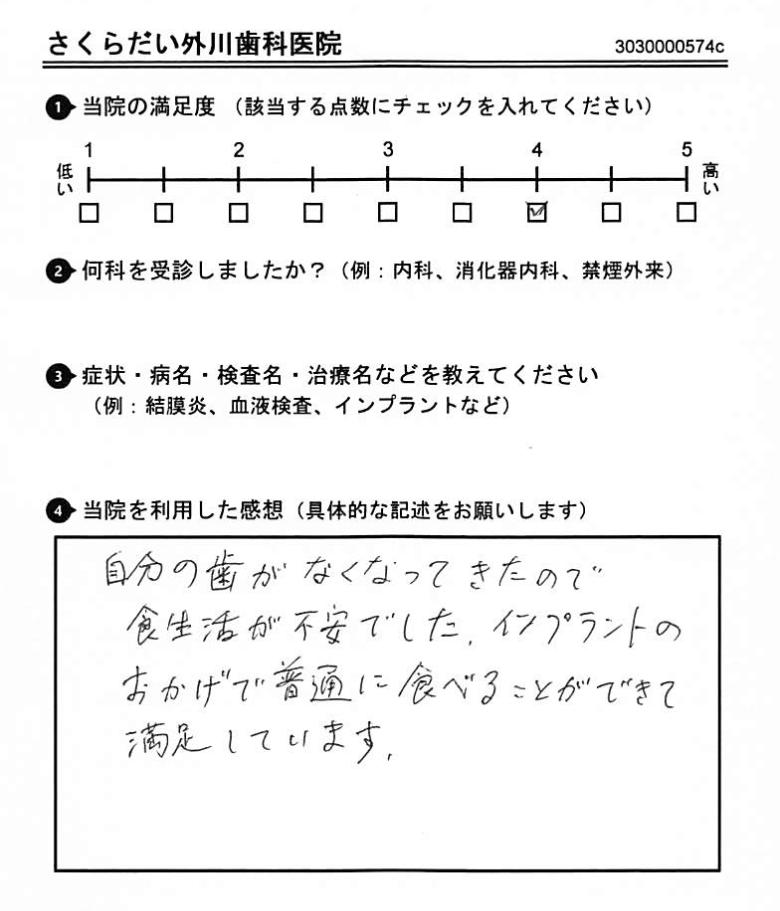 さくらだい外川歯科医院 3030000574c
1 当院の満足度 （該当する点数にチェックを入れてください）
1 2 3 4 5
低い 高い
2 何科を受診しましたか？（例：内科、消化器内科、禁煙外来）
3 症状・病名・検査名・治療名などを教えてください
（例：結膜炎、血液検査、インプラントなど）
4 当院を利用した感想（具体的な記述をお願いします）
自分の歯がなくなってきたので
食生活が不安でした。インプラントの
おかげで普通に食べることができて
満足しています。